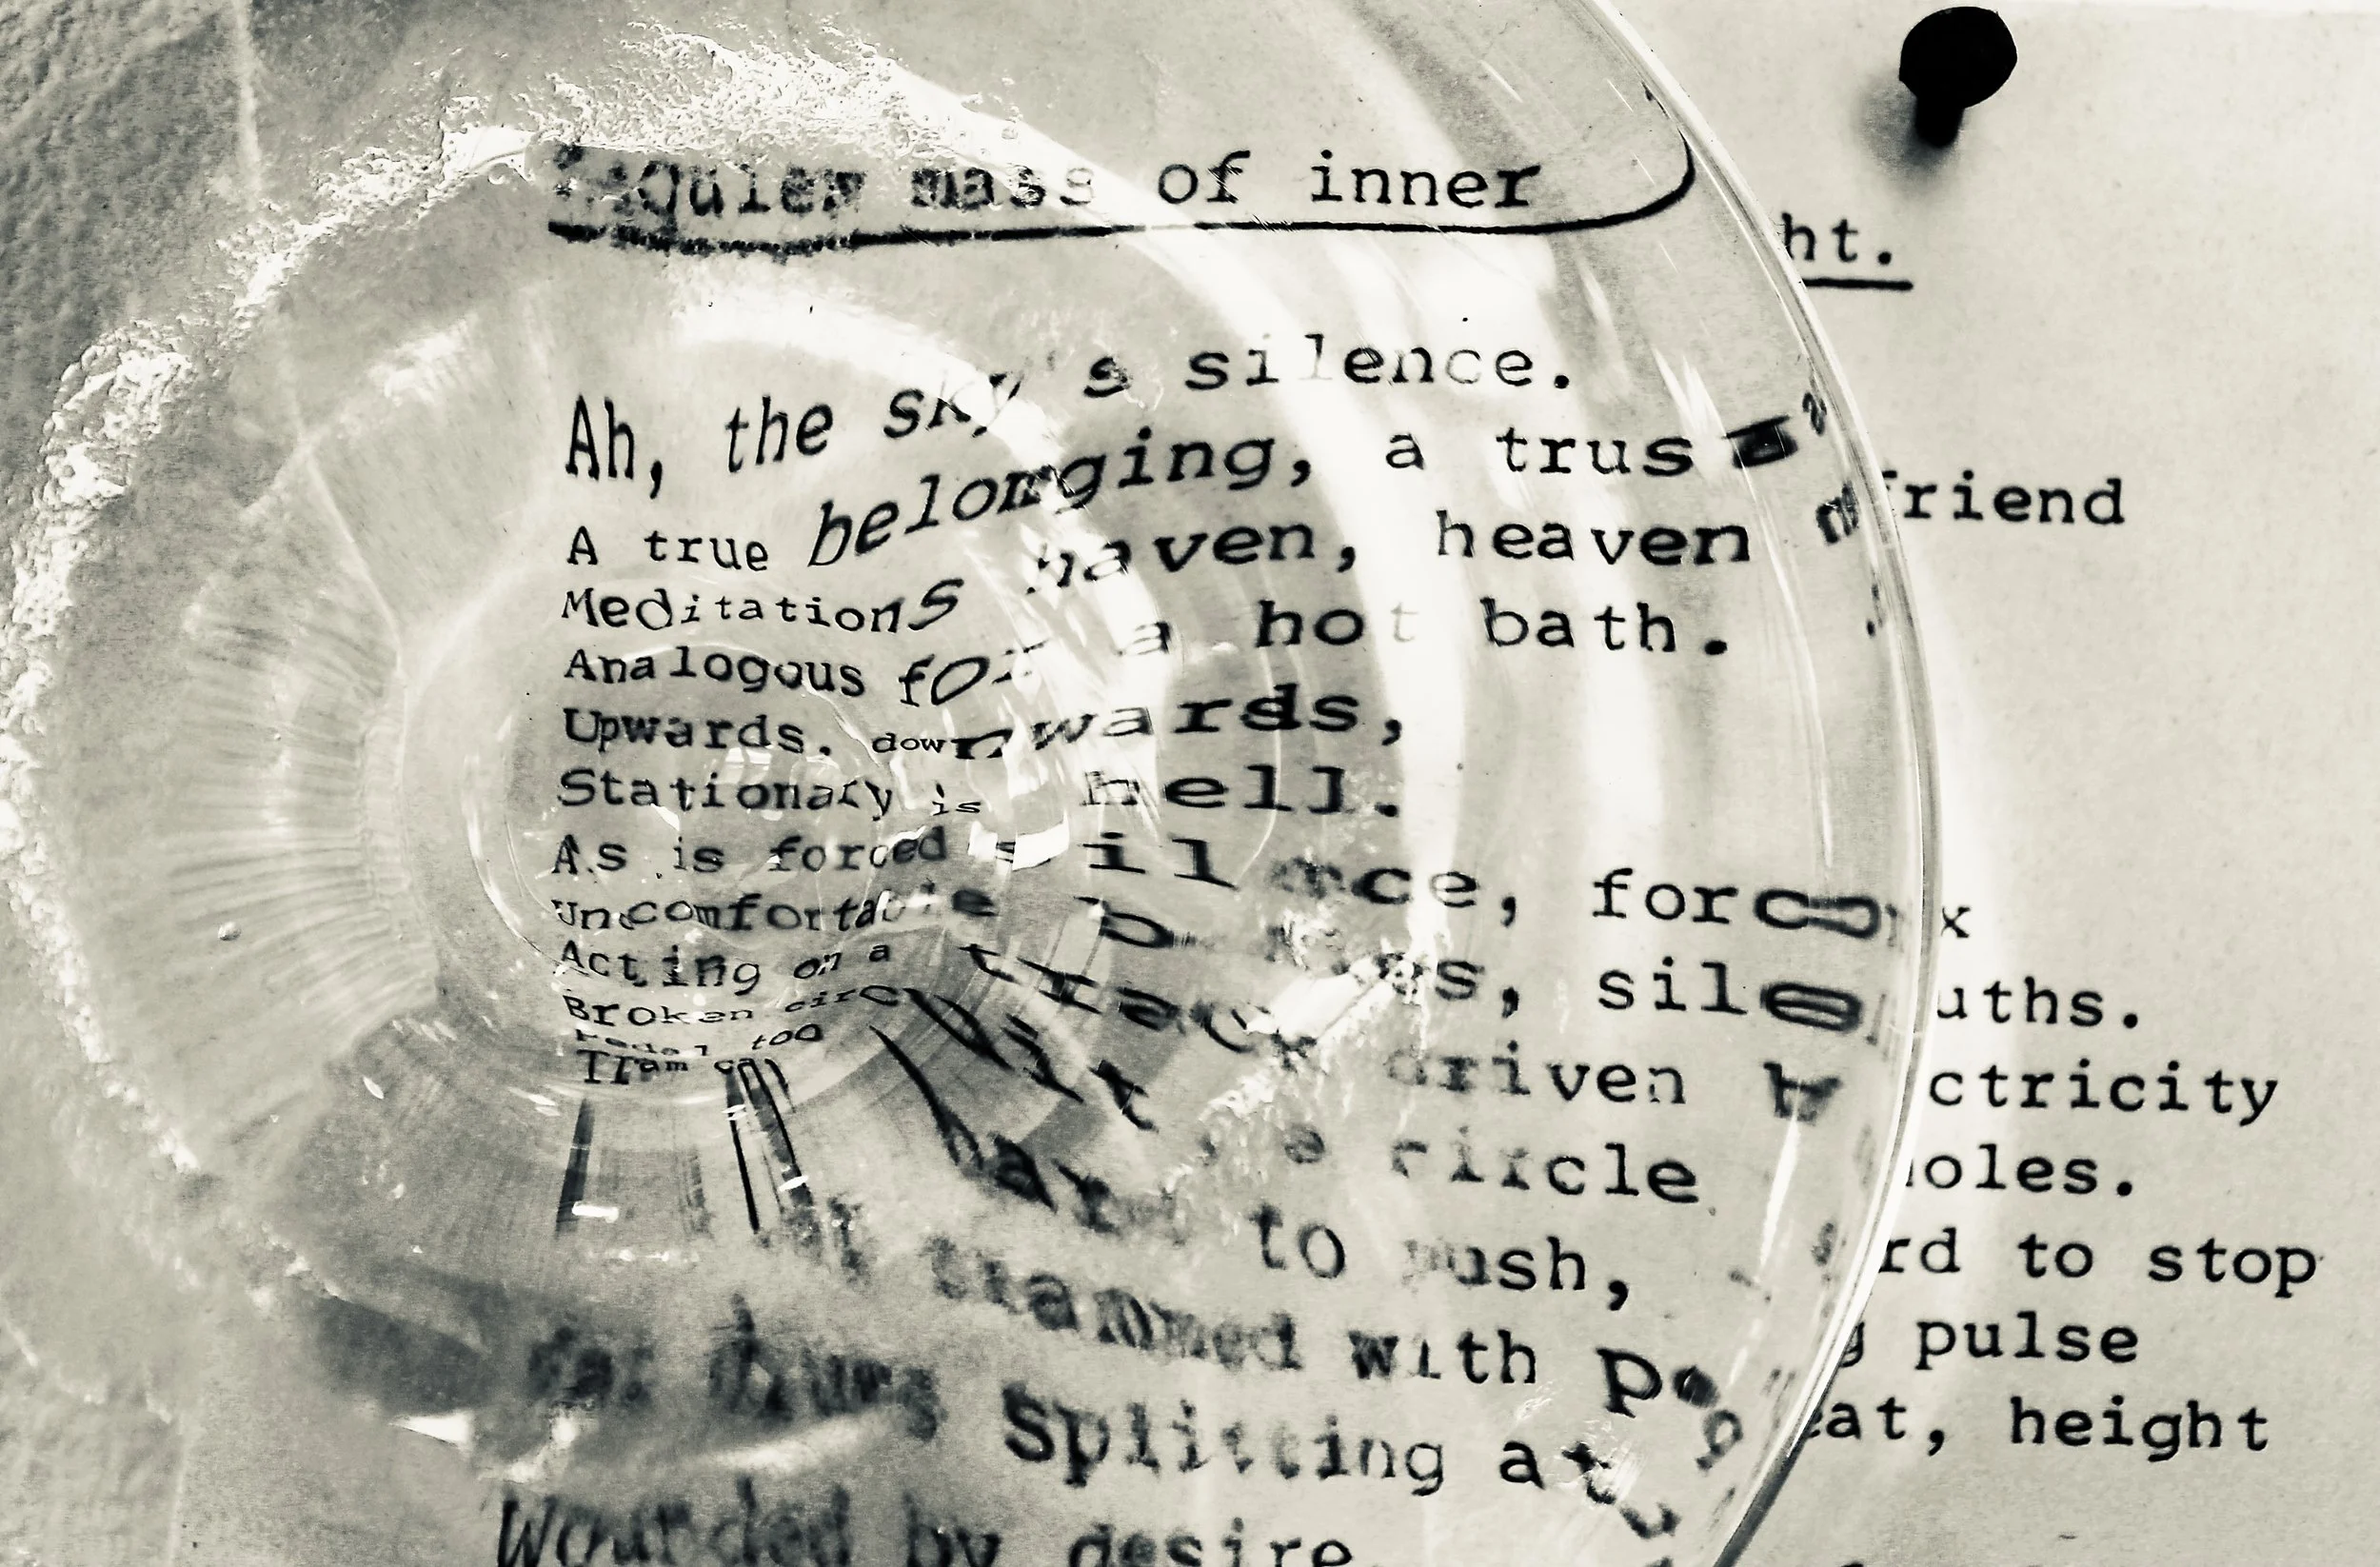 Requiem mass of inner ht.
Ah, the sky's silence.
A true belonging, a trus friend
Meditations haven, heaven
Analogous for a hot bath.
Upwards. downwards,
Stationary is hell.
As is forced silence, for x
Uncomfortable sil uths.
Acting on a track driven ctricity
Broken circuit, a circle oles.
Pedal too hard to push, rd to stop
Tram car trammed with pulse
Splitting at eat, height
Wounded by desire